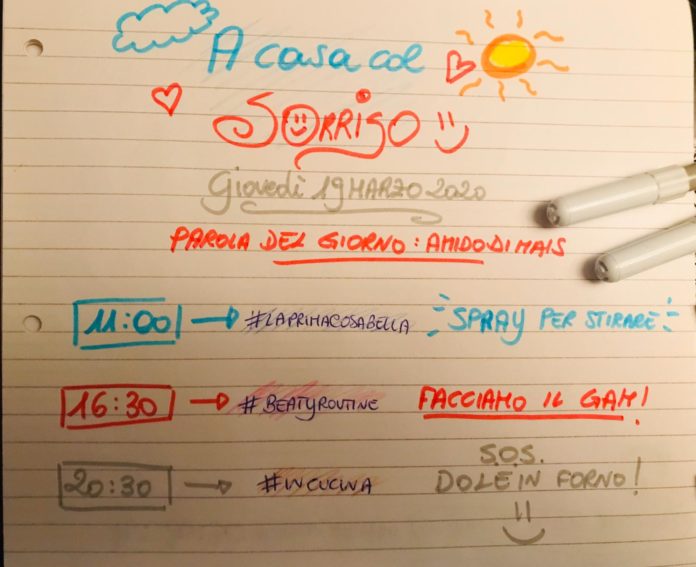 A casa col
SORRISO
Giovedì 19 MARZO 2020
PAROLA DEL GIORNO: AMIDO DI MAIS
11:00 #LAPRIMACOSABELLA SPRAY PER STIRARE
16:30 #BEATYROUTINE FACCIAMO IL GAM!
S.O.S.
20:30 #INCUCINA DOLE IN FORNO!